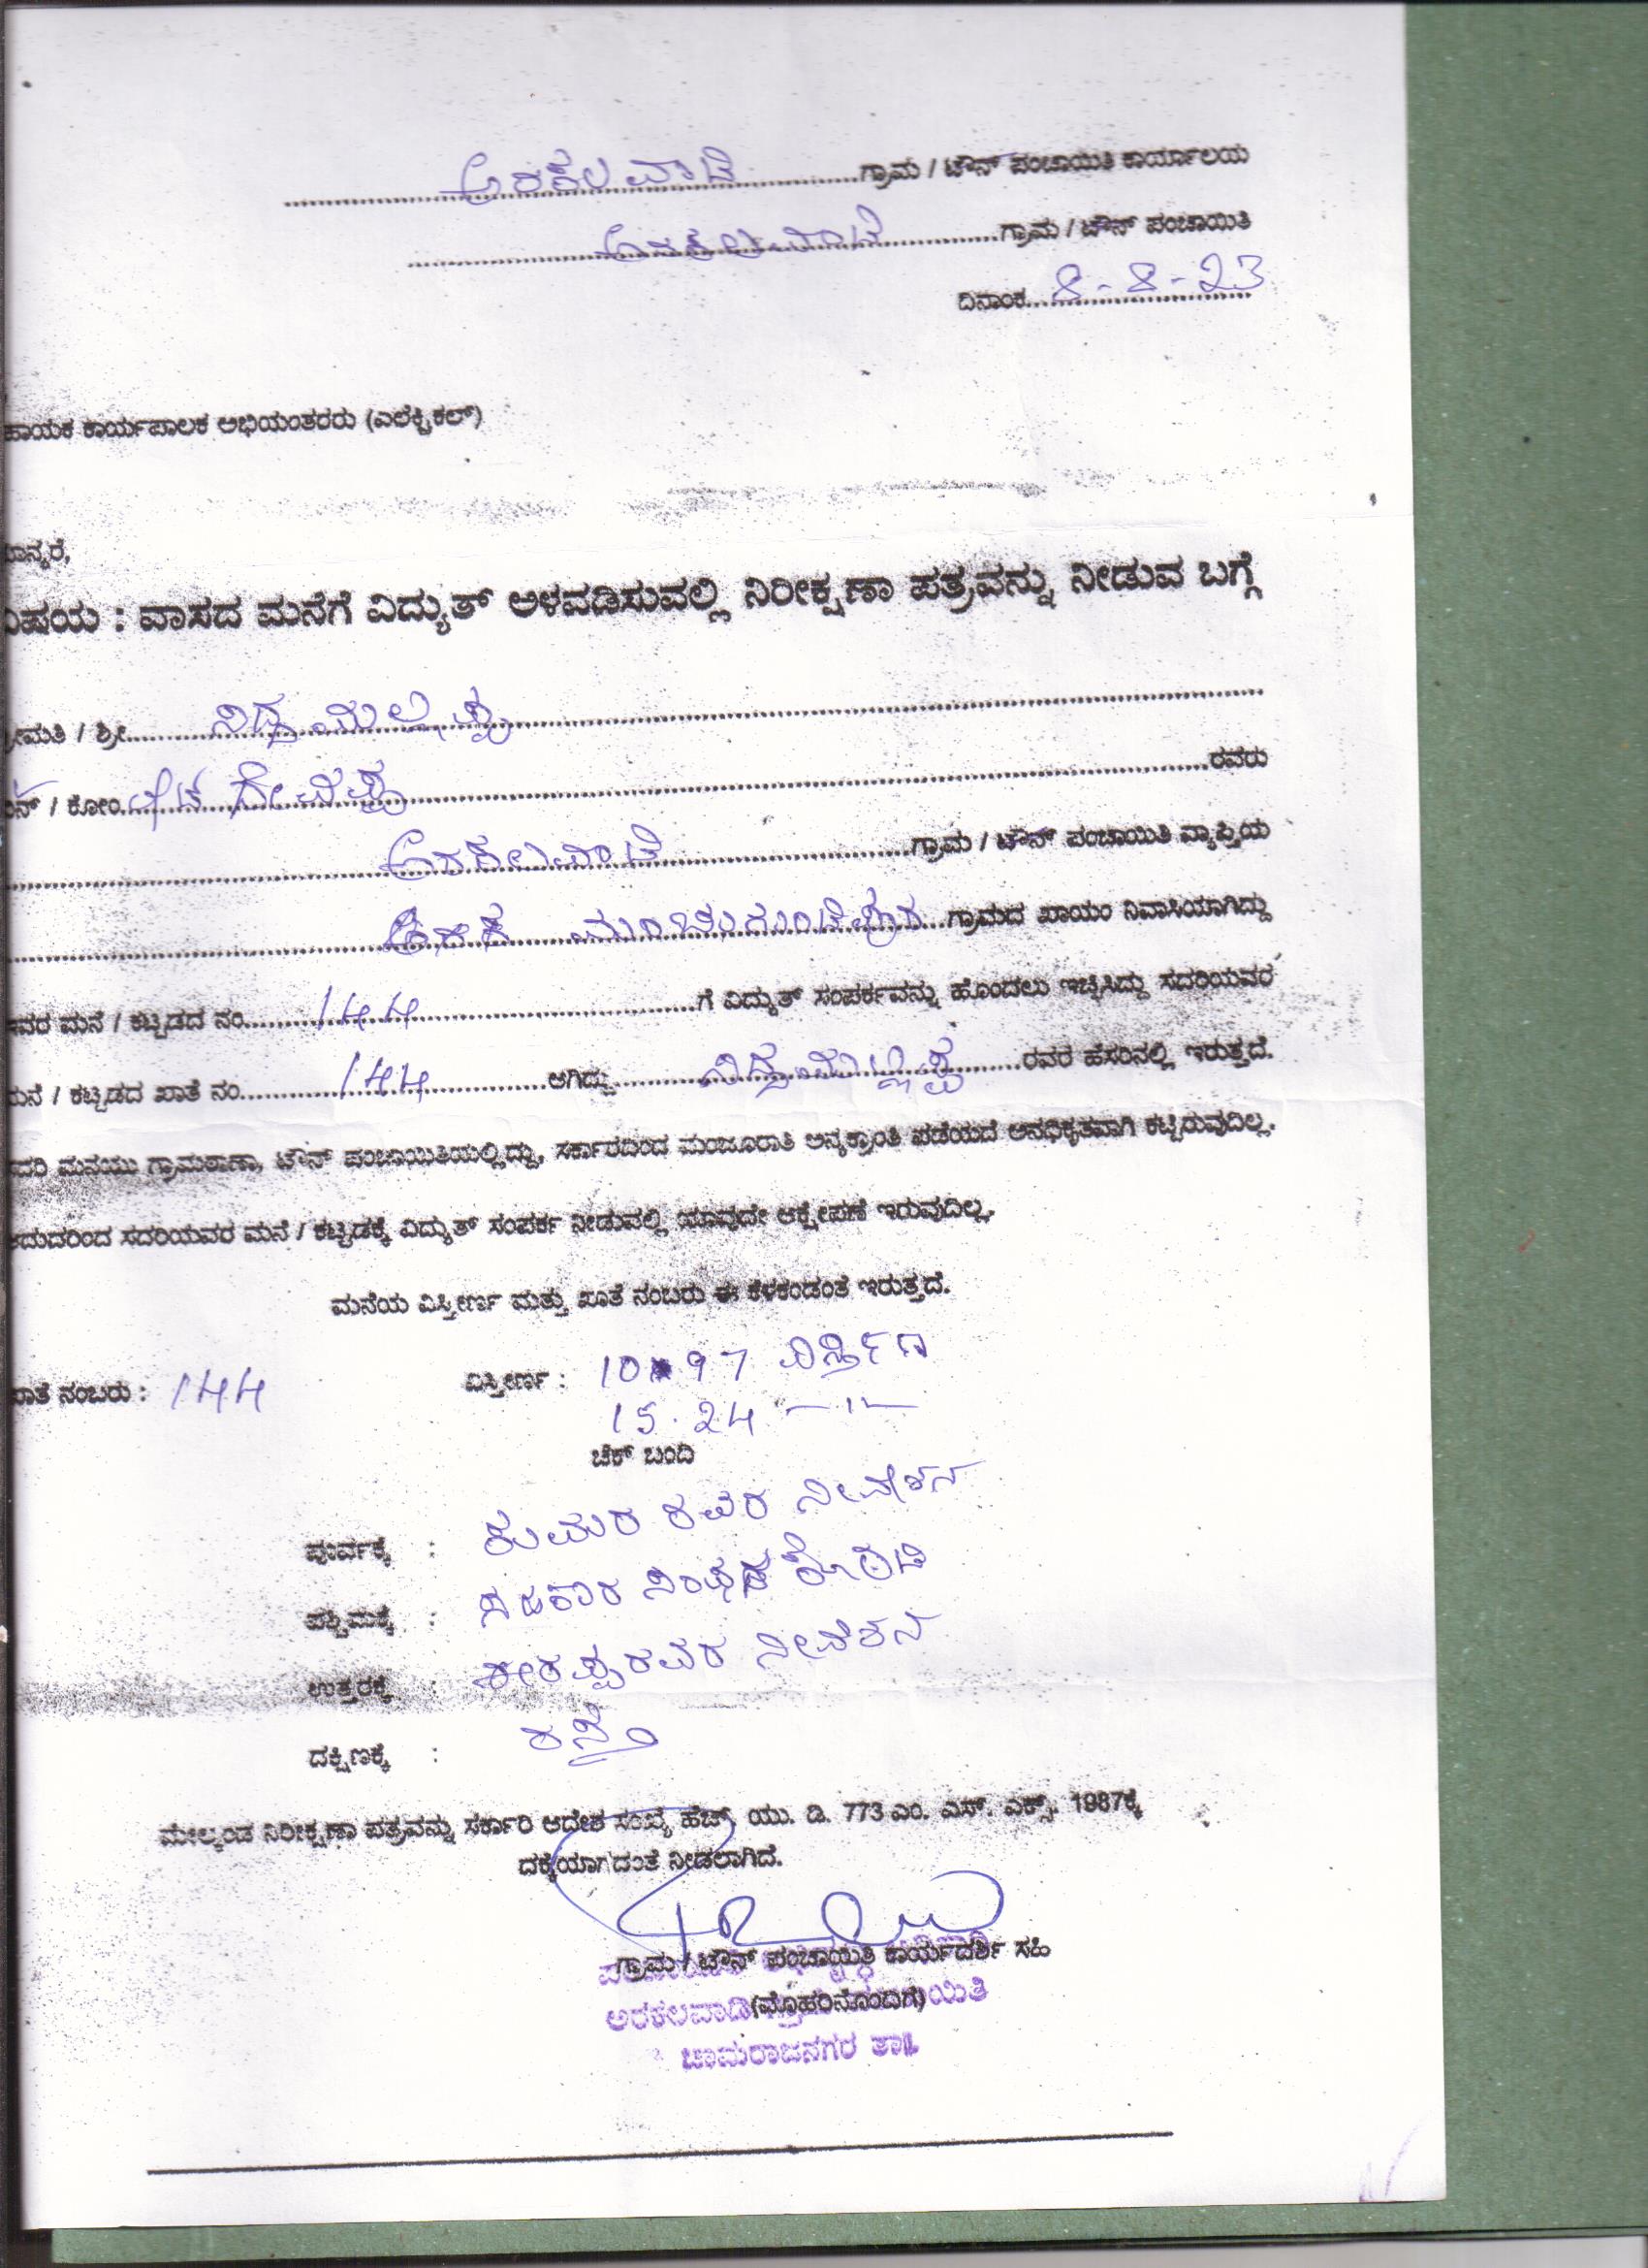 ಅರಕಲವಾಡಿ ಗ್ರಾಮ / ಟೌನ್ ಪಂಚಾಯಿತಿ ಕಾರ್ಯಾಲಯ
ಅರಕಲವಾಡಿ ಗ್ರಾಮ / ಟೌನ್ ಪಂಚಾಯಿತಿ
ದಿನಾಂಕ 8-8-23
ಹಾಯಕ ಕಾರ್ಯಪಾಲಕ ಅಭಿಯಂತರರು (ಎಲೆಕ್ಟ್ರಿಕಲ್)
ಮಾನ್ಯರೆ,
ವಿಷಯ : ವಾಸದ ಮನೆಗೆ ವಿದ್ಯುತ್ ಅಳವಡಿಸುವಲ್ಲಿ ನಿರೀಕ್ಷಣಾ ಪತ್ರವನ್ನು ನೀಡುವ ಬಗ್ಗೆ
ಶ್ರೀಮತಿ / ಶ್ರೀ ಸಿದ್ದಮಲ್ಲಪ್ಪ
ಬಿನ್ / ಕೋಂ ರವರು
ಅರಕಲವಾಡಿ ಗ್ರಾಮ / ಟೌನ್ ಪಂಚಾಯಿತಿ ವ್ಯಾಪ್ತಿಯ
ಗ್ರಾಮದ ಖಾಯಂ ನಿವಾಸಿಯಾಗಿದ್ದು
ಇವರ ಮನೆ / ಕಟ್ಟಡದ ನಂ. 144 ಗೆ ವಿದ್ಯುತ್ ಸಂಪರ್ಕವನ್ನು ಹೊಂದಲು ಇಚ್ಛಿಸಿದ್ದು ಸದರಿಯವರ
ಮನೆ / ಕಟ್ಟಡದ ಖಾತೆ ನಂ. 144 ಆಗಿದ್ದು ಸಿದ್ದಮಲ್ಲಪ್ಪ ರವರ ಹೆಸರಿನಲ್ಲಿ ಇರುತ್ತದೆ.
ಸದರಿ ಮನೆಯು ಗ್ರಾಮಠಾಣಾ, ಟೌನ್ ಪಂಚಾಯಿತಿಯಲ್ಲಿದ್ದು, ಸರ್ಕಾರದಿಂದ ಮಂಜೂರಾತಿ ಅನ್ಯಕ್ರಾಂತಿ ಪಡೆಯದೆ ಅನಧಿಕೃತವಾಗಿ ಕಟ್ಟಿರುವುದಿಲ್ಲ.
ಆದುದರಿಂದ ಸದರಿಯವರ ಮನೆ / ಕಟ್ಟಡಕ್ಕೆ ವಿದ್ಯುತ್ ಸಂಪರ್ಕ ನೀಡುವಲ್ಲಿ ಯಾವುದೇ ಆಕ್ಷೇಪಣೆ ಇರುವುದಿಲ್ಲ.
ಮನೆಯ ವಿಸ್ತೀರ್ಣ ಮತ್ತು ಖಾತೆ ನಂಬರು ಈ ಕೆಳಕಂಡಂತೆ ಇರುತ್ತದೆ.
ಖಾತೆ ನಂಬರು : 144 ವಿಸ್ತೀರ್ಣ : 10.97 ವಿಸ್ತೀರ್ಣ
15.24
ಚೆಕ್ ಬಂದಿ
ಪೂರ್ವಕ್ಕೆ : ಕುಮಾರ ರವರ ನಿವೇಶನ
ಪಶ್ಚಿಮಕ್ಕೆ : ಸಹಕಾರ ಸಂಘದ
ಉತ್ತರಕ್ಕೆ : ನಿವೇಶನ
ದಕ್ಷಿಣಕ್ಕೆ : ರಸ್ತೆ
ಮೇಲ್ಕಂಡ ನಿರೀಕ್ಷಣಾ ಪತ್ರವನ್ನು ಸರ್ಕಾರಿ ಆದೇಶ ಸಂಖ್ಯೆ ಹೆಚ್. ಯು. ಡಿ. 773 ಎಂ. ಎಸ್. ಎಕ್ಸ್. 1987ಕ್ಕೆ
ದಕ್ಕೆಯಾಗದಂತೆ ನೀಡಲಾಗಿದೆ.
ಗ್ರಾಮ / ಟೌನ್ ಪಂಚಾಯಿತಿ ಕಾರ್ಯದರ್ಶಿ ಸಹಿ
(ಮೊಹರಿನೊಂದಿಗೆ)
ಅರಕಲವಾಡಿ
ಚಾಮರಾಜನಗರ ತಾ||